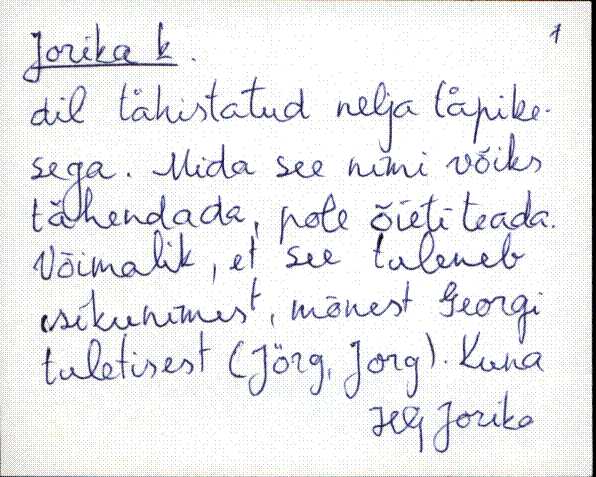 Jorika k. 1
dil tähistatud nelja täpike-
sega. Mida see nimi võiks
tähendada, pole õieti teada.
Võimalik, et see tuleneb
isikunimest, mõnest Georgi
tuletisest (Jörg, Jorg). Kuna
Jorika